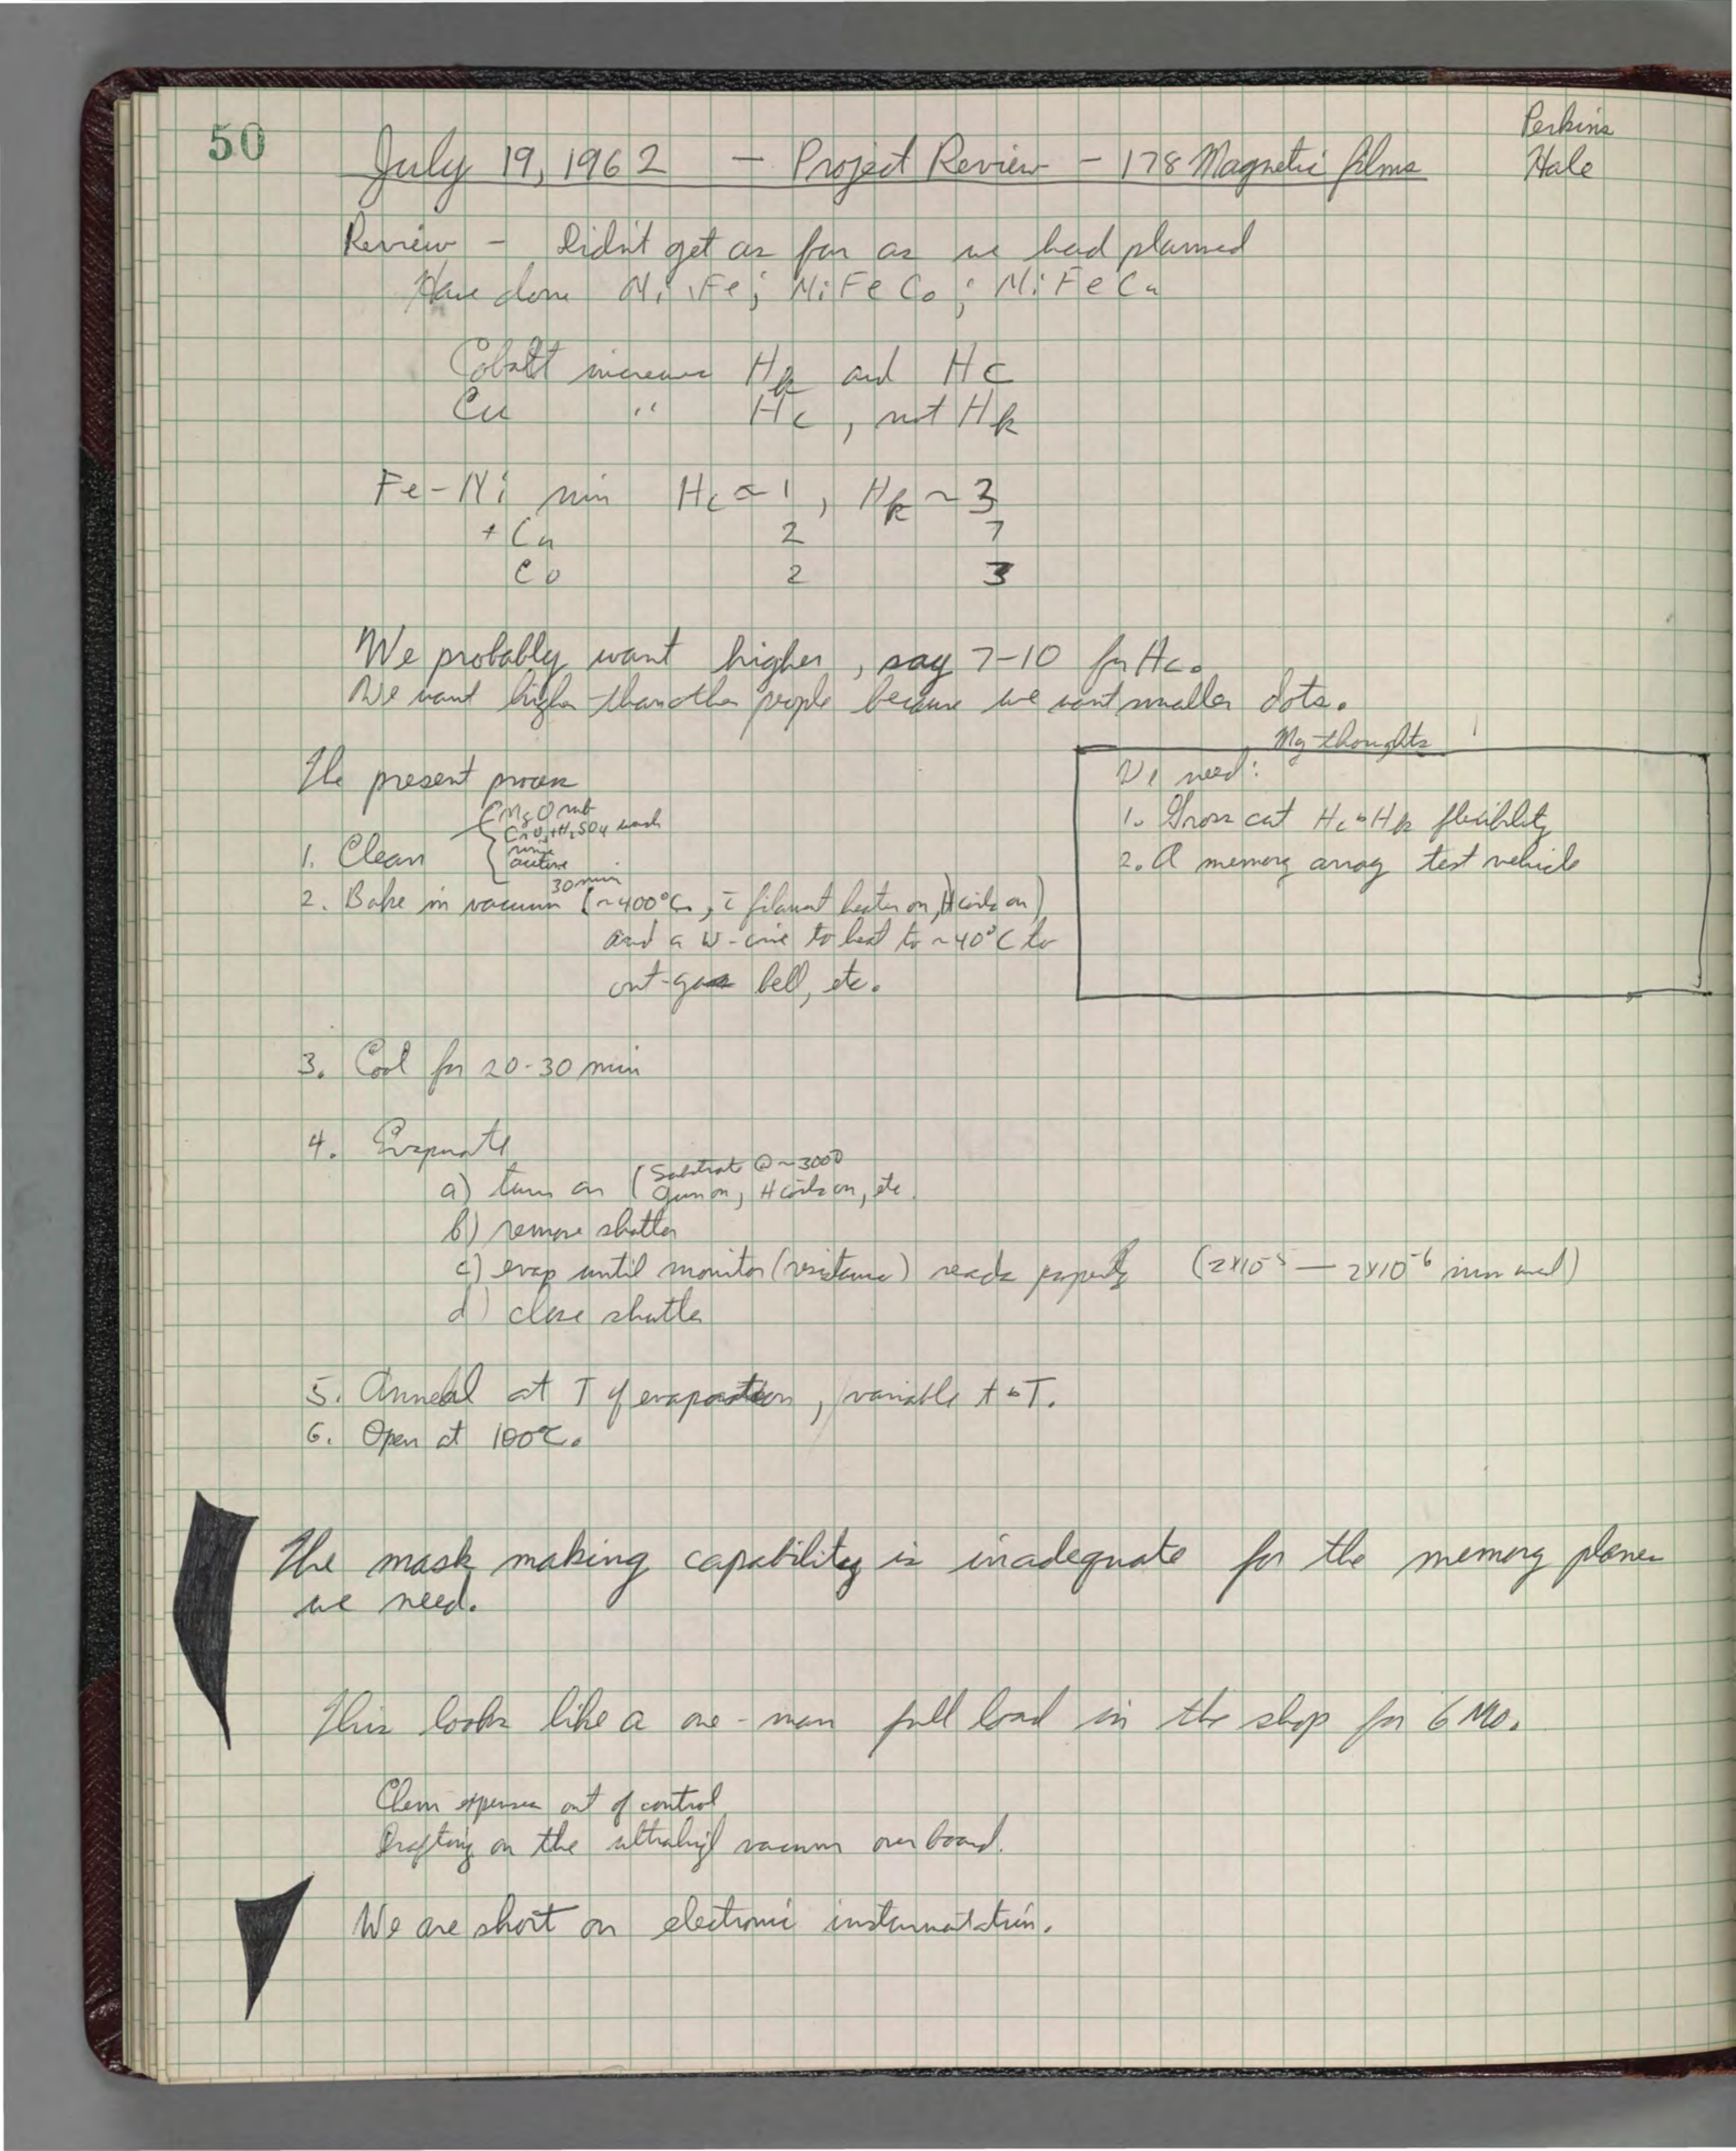 50
Perkins
Hale
July 19, 1962 — Project Review - 178 Magnetic films
Review - Didn't get as far as we had planned
Have done Ni Fe; NiFeCo; NiFeCu
Cobalt increases Hk and Hc
Cu " Hc, not Hk
Fe-Ni min Hc ~ 1, Hk ~ 3
+ Cu 2 7
Co 2 3
We probably want higher, say 7-10 for Hc.
We want higher than other people because we want smaller dots.
My thoughts
We need:
1. Gross cut Hc & Hk flexibility
2. A memory array test vehicle
The present process
1. Clean
MgO rub
CrO3+H2SO4 wash
rinse
acetone
30 min
2. Bake in vacuum (~400°C, c̄ filament heater on, H coils on)
and a W-wire to heat to ~40°C to
out-gas bell, etc.
3. Cool for 20-30 min
4. Evaporate
a) turn on (Substrate @ ~300°
Gun on, H coils on, etc.
b) remove shutter
c) evap until monitor (resistance) reads properly (2x10-5 — 2x10-6 mm)
d) close shutter
5. Anneal at T of evaporation, variable t & T.
6. Open at 100°C.
The mask making capability is inadequate for the memory planes
we need.
This looks like a one-man full load in the shop for 6 Mo.
Chem expenses out of control
Drafting on the ultrahigh vacuum over board.
We are short on electronic instrumentation.